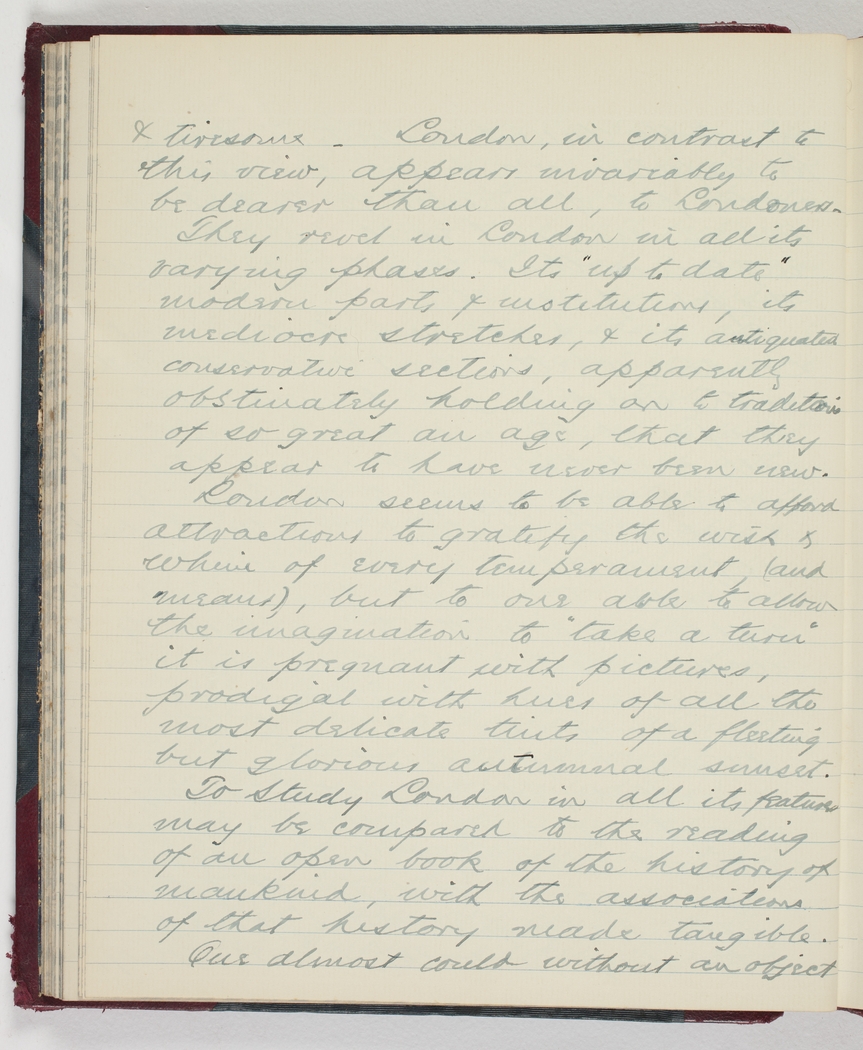 & tiresome - London, in contrast to
this view, appears invariably to
be dearer than all, to Londoners-
They revel in London in all its
varying phases. Its "up to date"
modern parts & institutions, its
mediocre stretches, & its antiquated
conservative sections, apparently
obstinately holding on to traditions
of so great an age, that they
appear to have never been new.
London seems to be able to afford
attractions to gratify the wish &
whim of every temperament, (and
means), but to one able to allow
the imagination to "take a turn"
it is pregnant with pictures,
prodigal with hues of all the
most delicate tints of a fleeting
but glorious autumnal sunset.
To study London in all its features
may be compared to the reading
of an open book of the history of
mankind, with the associations
of that history made tangible.
One almost could without an object